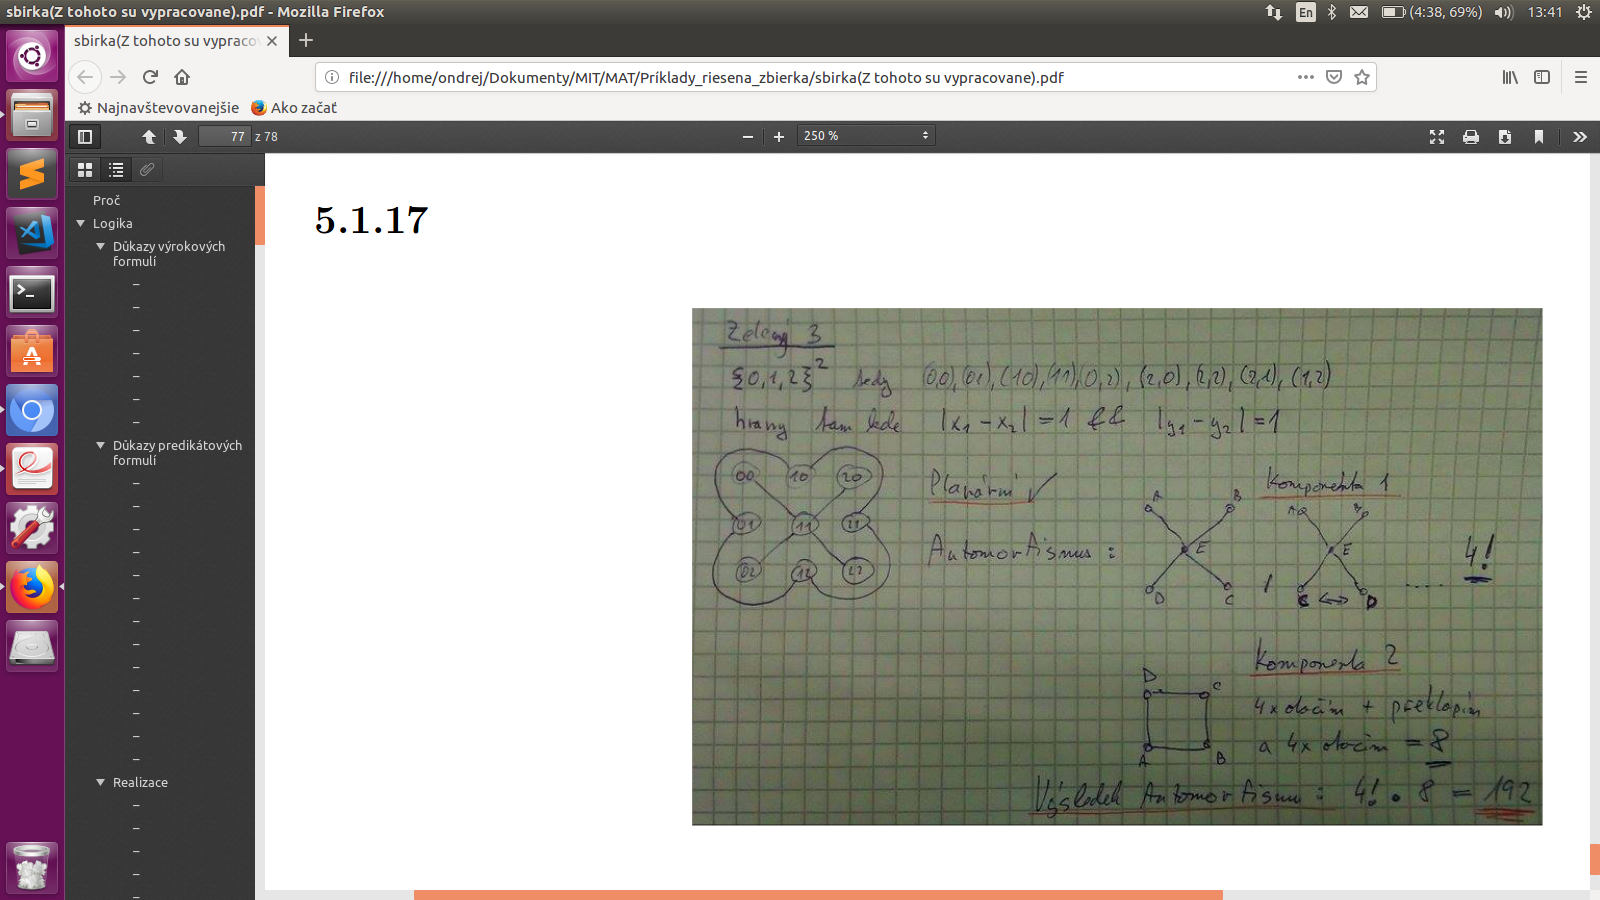 sbirka(Z tohoto su vypracovane).pdf - Mozilla Firefox
En
(4:38, 69%)
13:41
sbirka(Z tohoto su vypraco
file:///home/ondrej/Dokumenty/MIT/MAT/Príklady_riesena_zbierka/sbirka(Z tohoto su vypracovane).pdf
Najnavštevovanejšie
Ako začať
77
z 78
250 %
Proč
Logika
Důkazy výrokových
formulí
–
–
–
–
–
–
–
Důkazy predikátových
formulí
–
–
–
–
–
–
–
–
–
–
–
–
–
Realizace
–
–
–
–
–
5.1.17
Zelený 3
{0,1,2}² tedy (0,0),(0,1),(1,0),(1,1),(0,2),(2,0),(2,2),(2,1),(1,2)
hrany tam kde |x₁ - x₂| = 1 && |y₁ - y₂| = 1
00 10 20
01 11 21
02 12 22
Planární ✓
Automorfismus:
A B
E
D C
Komponenta 1
A B
E
C ↔ D
.... 4!
Komponenta 2
D C
A B
4x otočím + překlopím
a 4x otočím = 8
Výsledek Automorfismu: 4! · 8 = 192